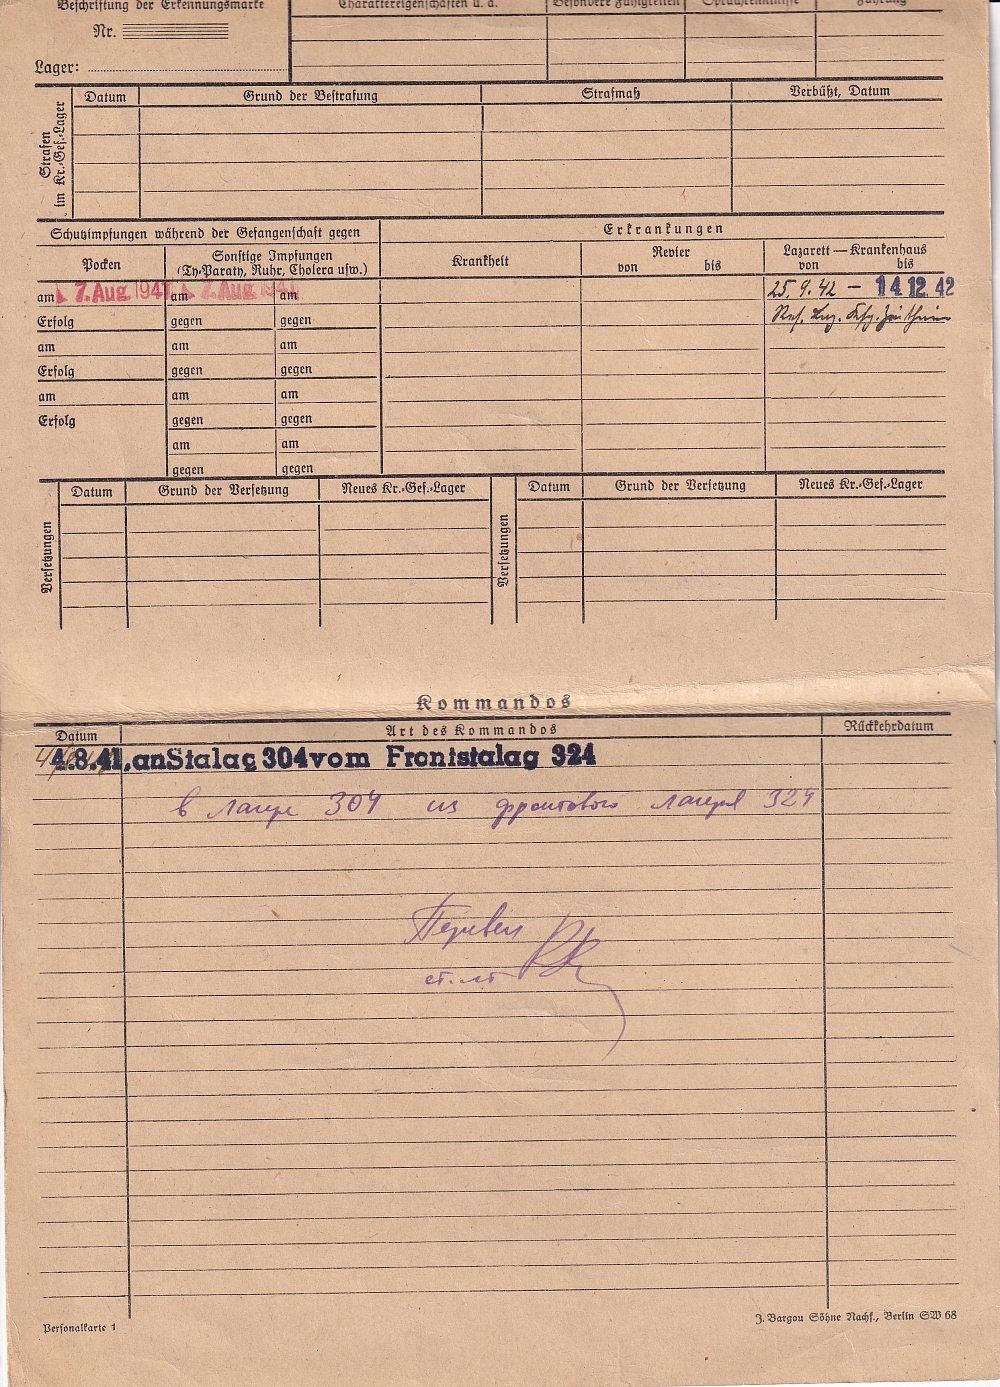 Beschriftung der Erkennungsmarke
Charaktereigenschaften u. ä.
Besondere Fähigkeiten
Sprachkenntnisse
Führung
Nr.
Lager:
Strafen im Kr.-Gef.-Lager
Datum
Grund der Bestrafung
Strafmaß
Verbüßt, Datum
Schutzimpfungen während der Gefangenschaft gegen
Erkrankungen
Pocken
Sonstige Impfungen
(Ty.-Paraty, Ruhr, Cholera usw.)
Krankheit
Revier
von bis
Lazarett — Krankenhaus
von bis
am 7. Aug 1941 am 7. Aug 1941 am
25. 9. 42 – 14 12. 42
Erfolg gegen gegen
Res. Laz.
am am am
Erfolg gegen gegen
am am am
Erfolg gegen gegen
am am
gegen gegen
Versetzungen
Datum
Grund der Versetzung
Neues Kr.-Gef.-Lager
Versetzungen
Datum
Grund der Versetzung
Neues Kr.-Gef.-Lager
Kommandos
Datum
Art des Kommandos
Rückkehrdatum
4.8.41, an Stalag 304 vom Frontstalag 324
в лагерь 304 из фронтового лагеря 324
Перевел
ст. лт
Personalkarte 1
J. Bargou Söhne Nachf., Berlin SW 68